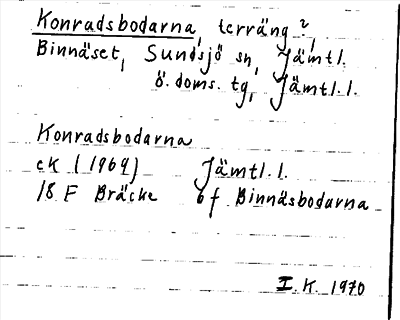 Konradsbodarna, terräng?,
Binnäset, Sundsjö sn, Jämtl.
ö. doms. tg, Jämtl. l.
Konradsbodarna
ek (1969) Jämtl. l.
18 F Bräcke 6 f Binnäsbodarna
I. K. 1970